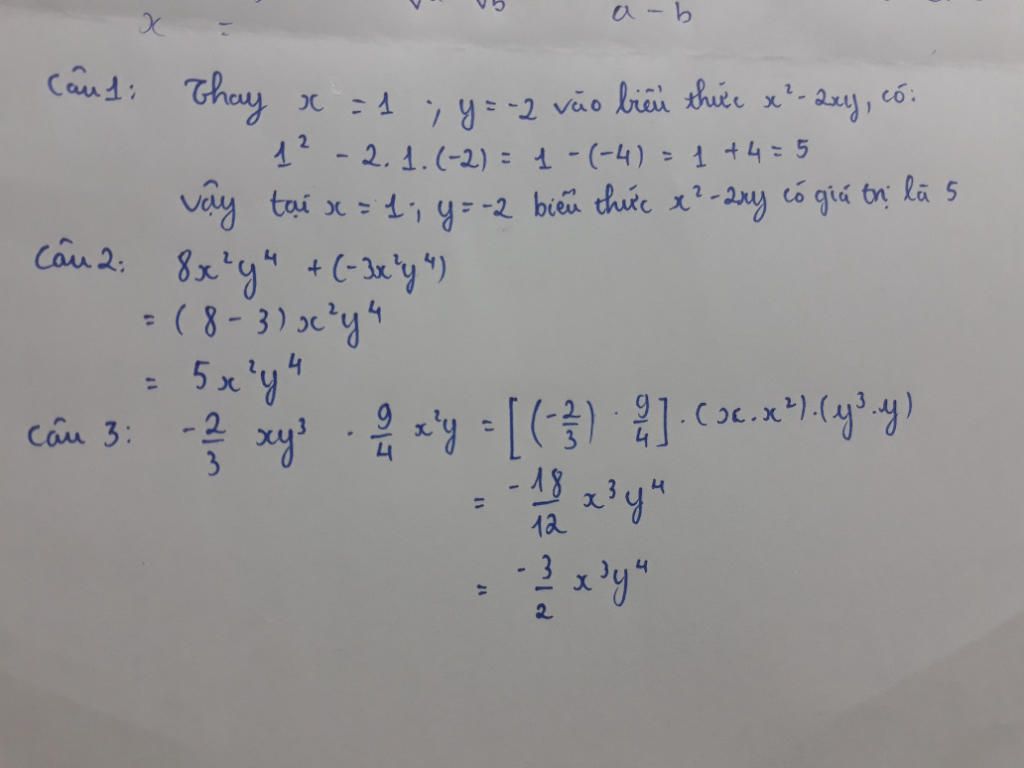 x =
a - b
Câu 1: Thay x = 1 ; y = -2 vào biểu thức x² - 2xy, có:
1² - 2. 1. (-2) = 1 - (-4) = 1 + 4 = 5
Vậy tại x = 1 ; y = -2 biểu thức x² - 2xy có giá trị là 5
Câu 2: 8x²y⁴ + (-3x²y⁴)
= ( 8 - 3 ) x²y⁴
= 5x²y⁴
Câu 3: -2/3 xy³ . 9/4 x²y = [(-2/3) . 9/4] . (x.x²).(y³.y)
= -18/12 x³y⁴
= -3/2 x³y⁴